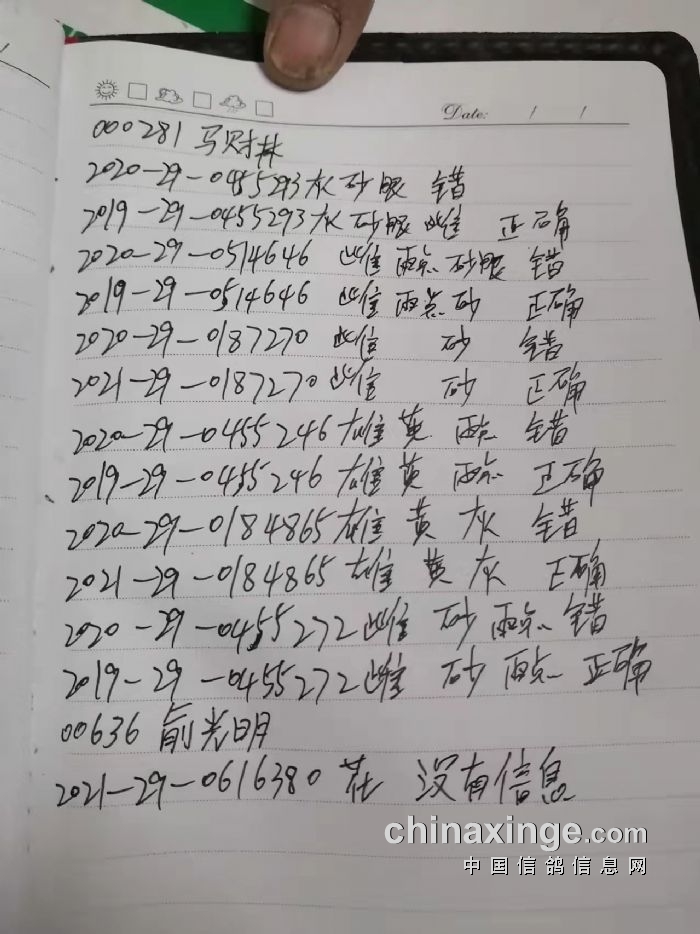 Date: / /
000281 马财林
2020-29-0455293灰砂眼 错
2019-29-0455293灰砂眼雌 正确
2020-29-0514646 雌雨点砂眼 错
2019-29-0514646 雌雨点砂 正确
2020-29-0187270 雌 砂 错
2021-29-0187270雌 砂 正确
2020-29-0455246雄黄 雨点 错
2019-29-0455246雄黄 雨点 正确
2020-29-0184865雄黄 灰 错
2021-29-0184865雄黄灰 正确
2020-29-0455272雌 砂雨点 错
2019-29-0455272雌 砂 雨点 正确
00636 俞光明
2021-29-0616380 花 没有信息
chinaxinge.com
中国信鸽信息网